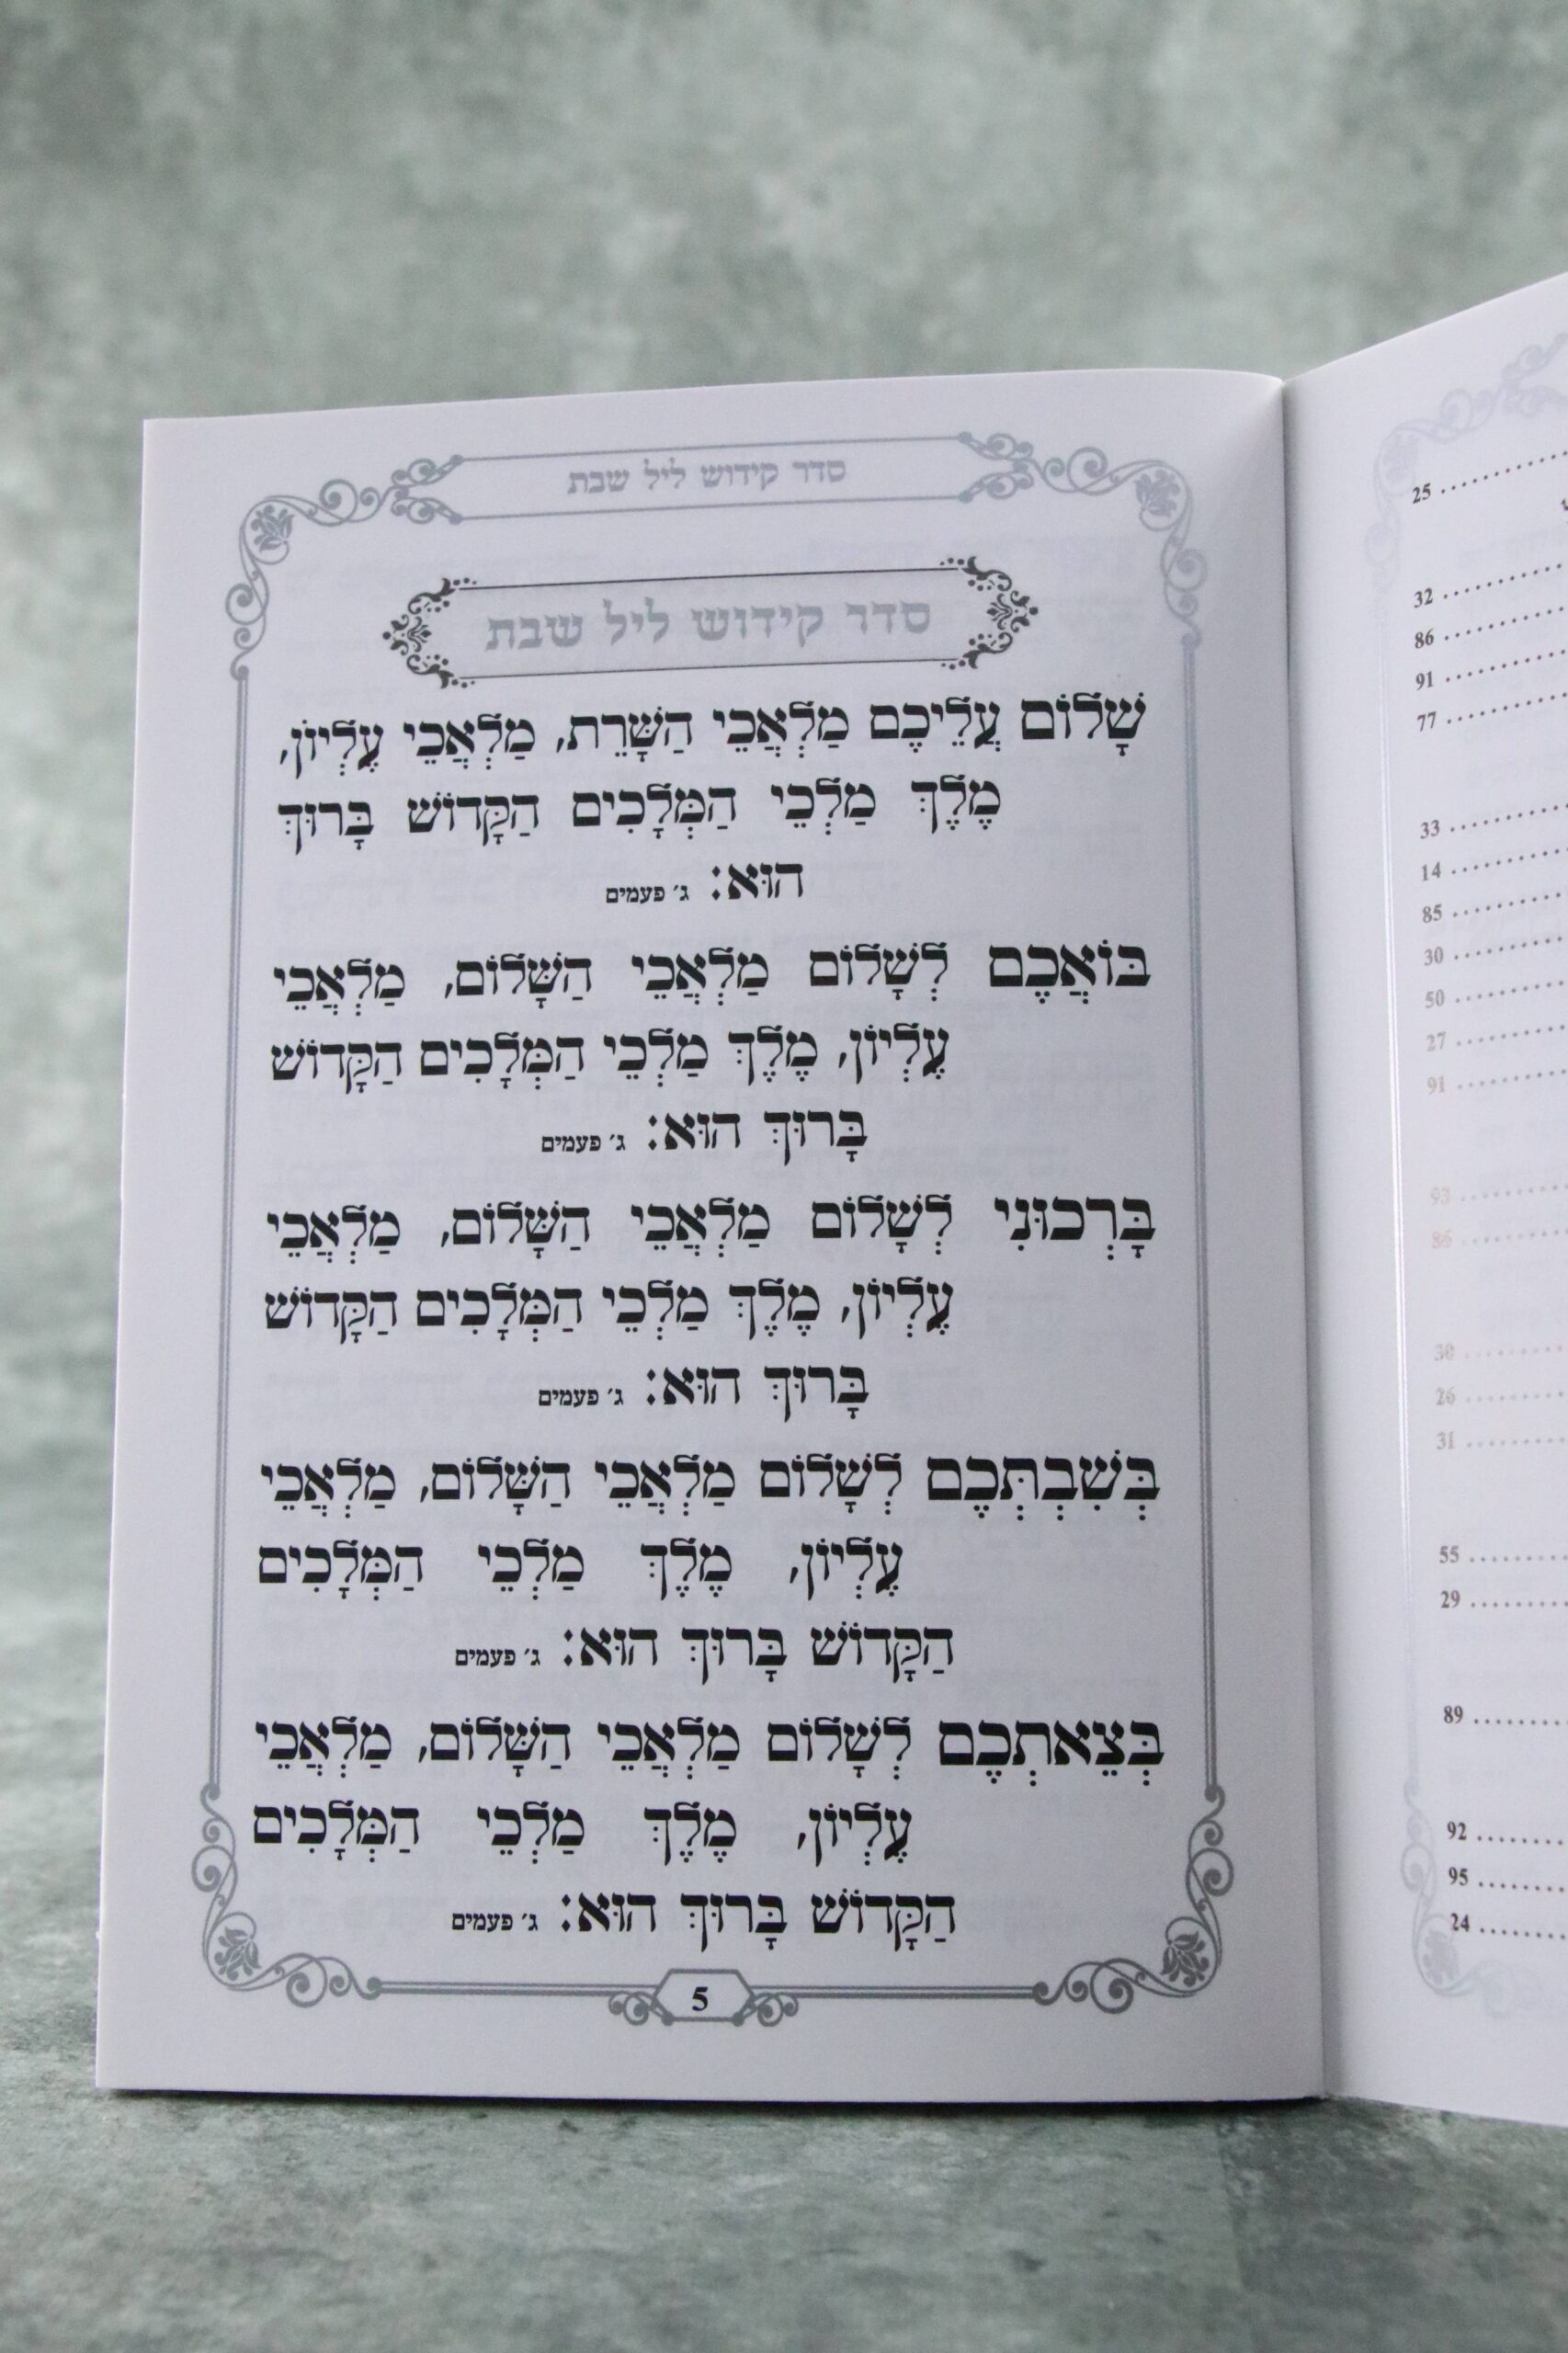 סדר קידוש ליל שבת
סדר קידוש ליל שבת
שָׁלוֹם עֲלֵיכֶם מַלְאֲכֵי הַשָּׁרֵת, מַלְאֲכֵי עֶלְיוֹן,
מֶלֶךְ מַלְכֵי הַמְּלָכִים הַקָּדוֹשׁ בָּרוּךְ
הוּא: ג׳ פעמים
בּוֹאֲכֶם לְשָׁלוֹם מַלְאֲכֵי הַשָּׁלוֹם, מַלְאֲכֵי
עֶלְיוֹן, מֶלֶךְ מַלְכֵי הַמְּלָכִים הַקָּדוֹשׁ
בָּרוּךְ הוּא: ג׳ פעמים
בָּרְכוּנִי לְשָׁלוֹם מַלְאֲכֵי הַשָּׁלוֹם, מַלְאֲכֵי
עֶלְיוֹן, מֶלֶךְ מַלְכֵי הַמְּלָכִים הַקָּדוֹשׁ
בָּרוּךְ הוּא: ג׳ פעמים
בְּשִׁבְתְּכֶם לְשָׁלוֹם מַלְאֲכֵי הַשָּׁלוֹם, מַלְאֲכֵי
עֶלְיוֹן, מֶלֶךְ מַלְכֵי הַמְּלָכִים
הַקָּדוֹשׁ בָּרוּךְ הוּא: ג׳ פעמים
בְּצֵאתְכֶם לְשָׁלוֹם מַלְאֲכֵי הַשָּׁלוֹם, מַלְאֲכֵי
עֶלְיוֹן, מֶלֶךְ מַלְכֵי הַמְּלָכִים
הַקָּדוֹשׁ בָּרוּךְ הוּא: ג׳ פעמים
5
25
32
86
91
77
33
14
85
30
50
27
91
93
86
30
26
31
55
29
89
92
95
24